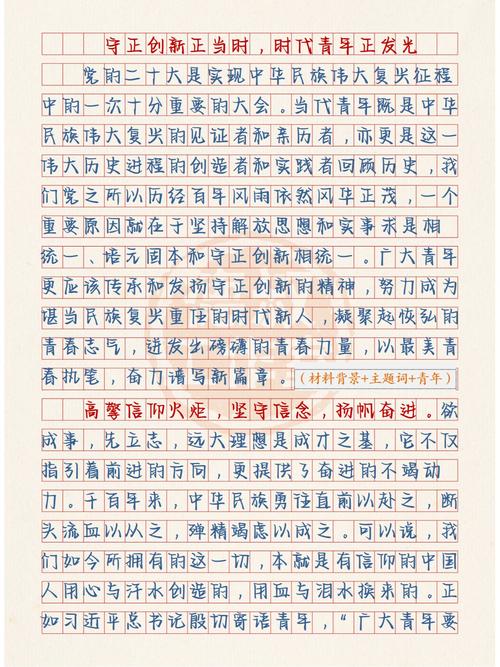 守正创新正当时，时代青年正发光
党的二十大是实现中华民族伟大复兴征程
中的一次十分重要的大会。当代青年既是中华
民族伟大复兴的见证者和亲历者，亦更是这一
伟大历史进程的创造者和实践者回顾历史，我
们党之所以历经百年风雨依然风华正茂，一个
重要原因就在于坚持解放思想和实事求是相
统一、培元固本和守正创新相统一。广大青年
更应该传承和发扬守正创新的精神，努力成为
堪当民族复兴重任的时代新人，凝聚起恢弘的
青春志气，迸发出磅礴的青春力量，以最美青
春执笔，奋力谱写新篇章。（材料背景+主题词+青年）
高擎信仰火炬，坚守信念，扬帆奋进。欲
成事，先立志，远大理想是成才之基，它不仅
指引着前进的方向，更提供了奋进的不竭动
力。千百年来，中华民族勇往直前以赴之，断
头流血以从之，殚精竭虑以成之。可以说，我
们如今所拥有的这一切，本就是有信仰的中国
人用心与汗水创造的，用血与泪水换来的。正
如习近平总书记殷切寄语青年，“广大青年要